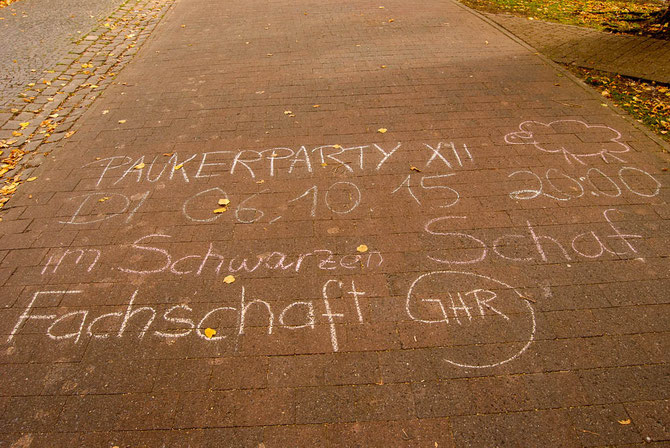 PAUKERPARTY XII
DI 06.10.15 20:00
im Schwarzen Schaf
Fachschaft GHR